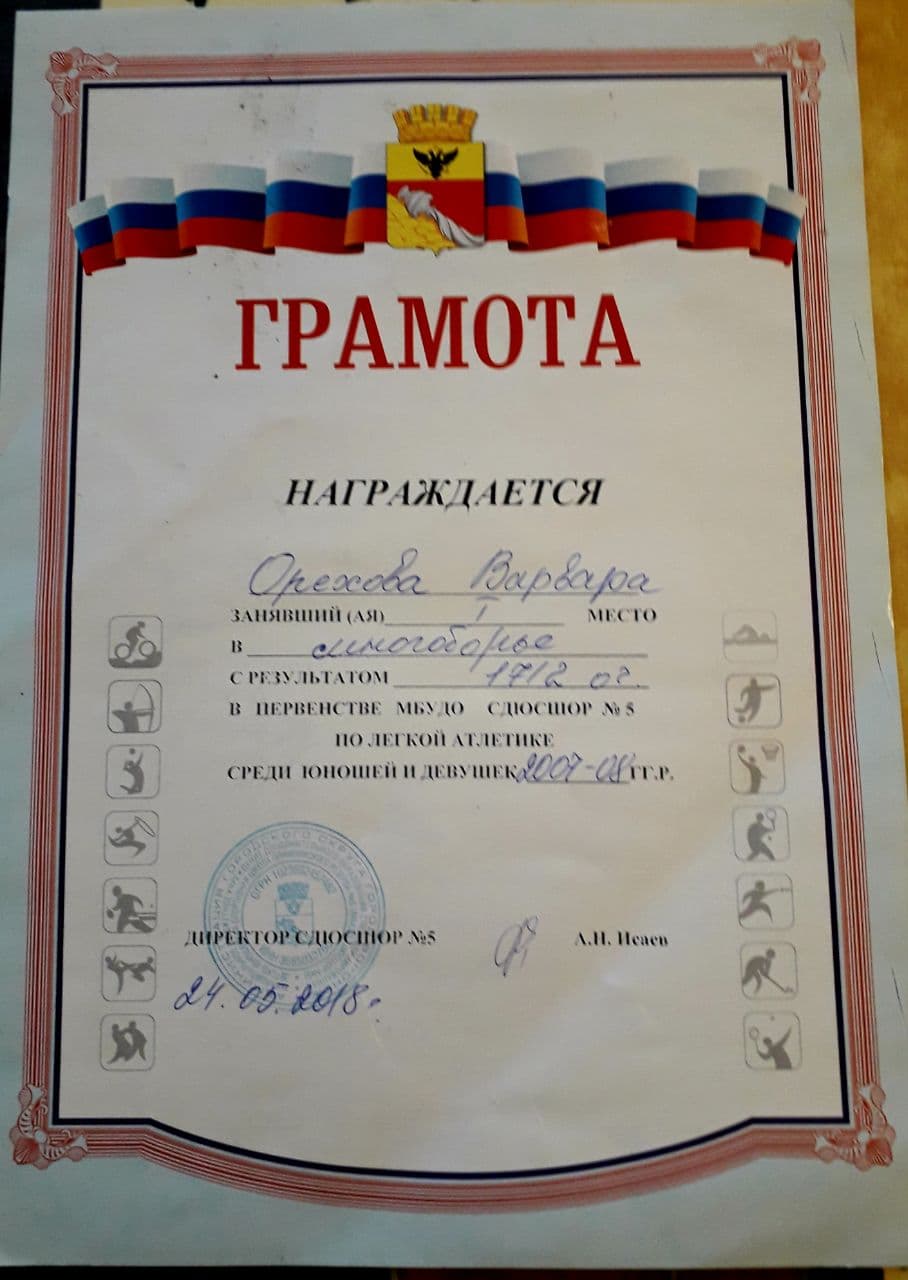 ГРАМОТА
НАГРАЖДАЕТСЯ
Орехова Варвара
ЗАНЯВШИЙ (АЯ) I МЕСТО
В многоборье
С РЕЗУЛЬТАТОМ 1712 оч.
В ПЕРВЕНСТВЕ МБУДО СДЮСШОР № 5
ПО ЛЕГКОЙ АТЛЕТИКЕ
СРЕДИ ЮНОШЕЙ И ДЕВУШЕК 2007-08 ГГ.Р.
ДИРЕКТОР СДЮСШОР №5 А.И. Исаев
24.05.2018г.